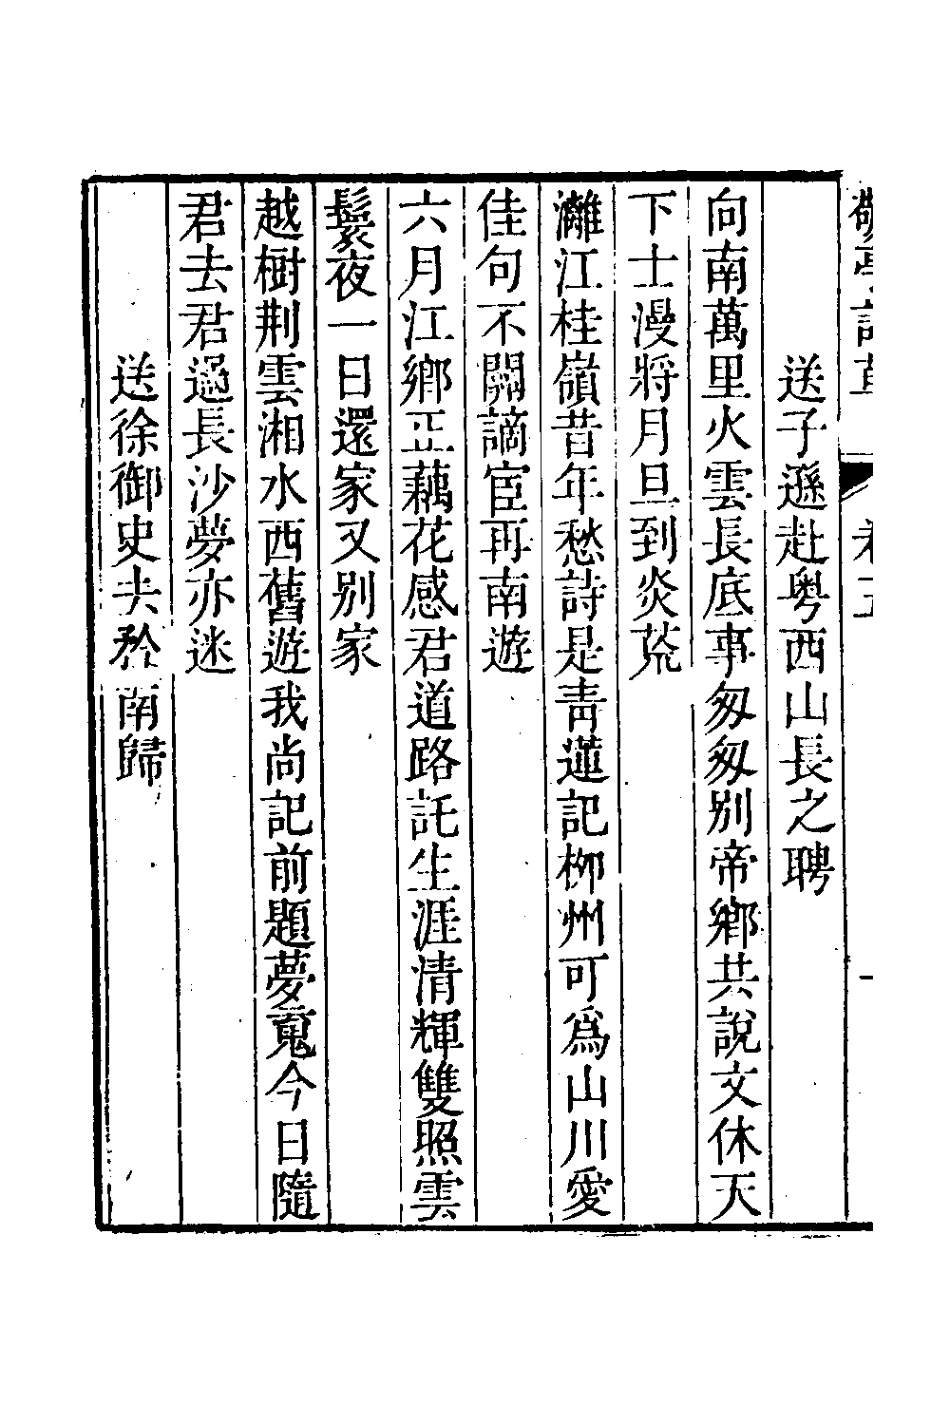 敬亭詩草 卷五 一
送子遜赴粤西山長之聘
向南萬里火雲長底事匆匆别帝鄉共說文休天
下士漫將月旦到炎荒
灕江桂嶺昔年愁詩是青蓮記柳州可爲山川愛
佳句不關謫宦再南遊
六月江鄉正藕花感君道路託生涯清輝雙照雲
鬟夜一日還家又别家
越樹荆雲湘水西舊遊我尚記前題夢䰟今日隨
君去君過長沙夢亦迷
送徐御史夫矜南歸